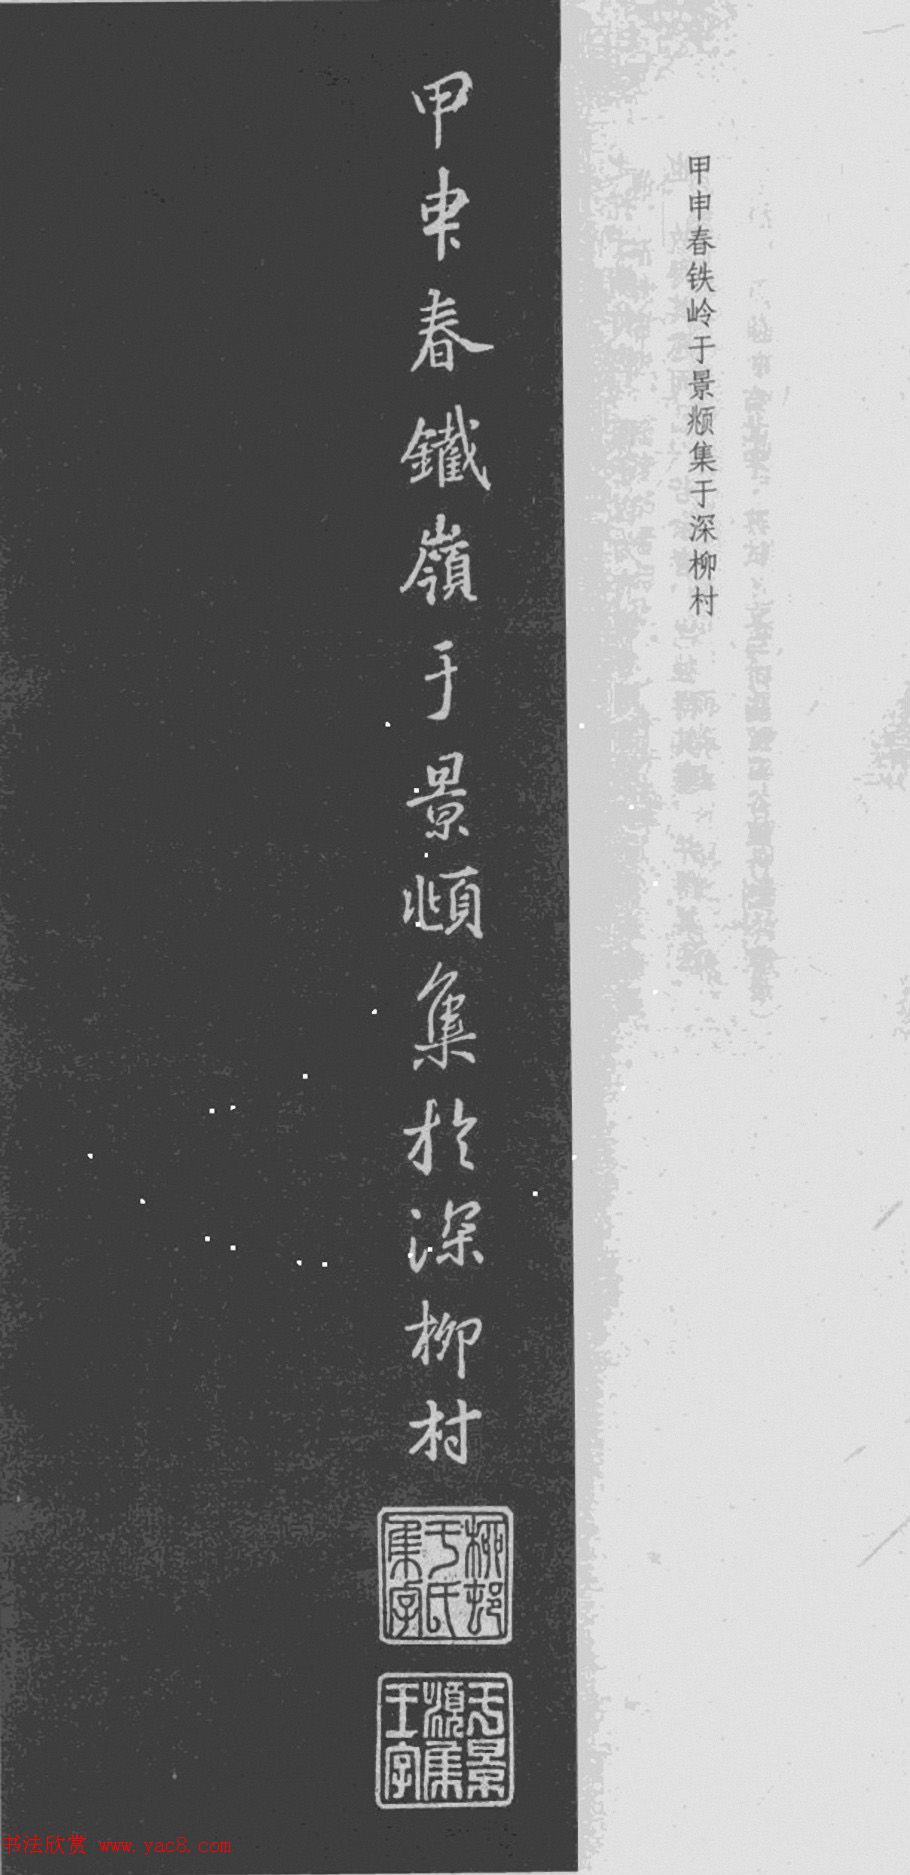 甲申春铁岭于景𬱓集于深柳村
甲申春鐵嶺于景頫集於深柳村
柳邨
于氏
集字
于景
頫集
王字
书法欣赏 www.yac8.com